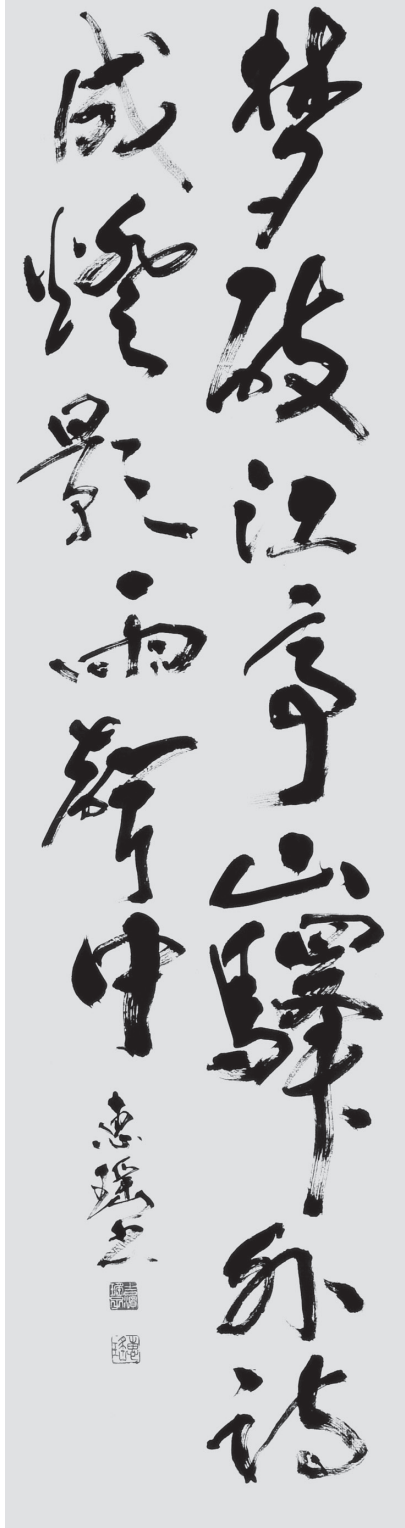 梦破江亭山驛外詩
成燈影雨聲中
惠瑶書